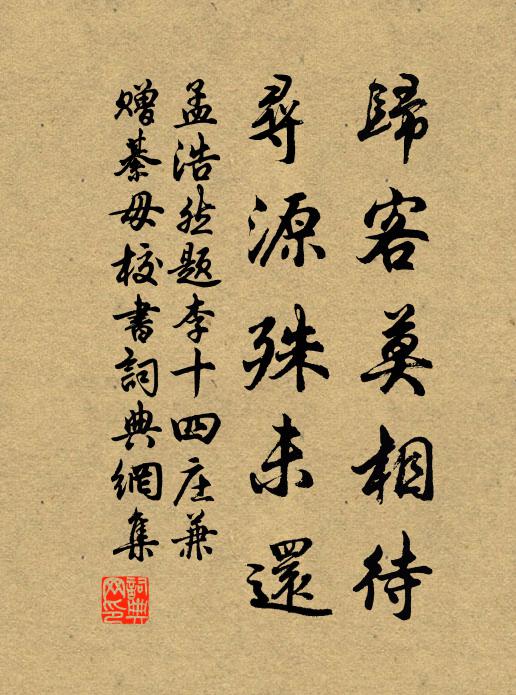 歸客莫相待
尋源殊未還
孟浩然題李十四庄兼
贈綦毋校書詞典網集
詞典網印